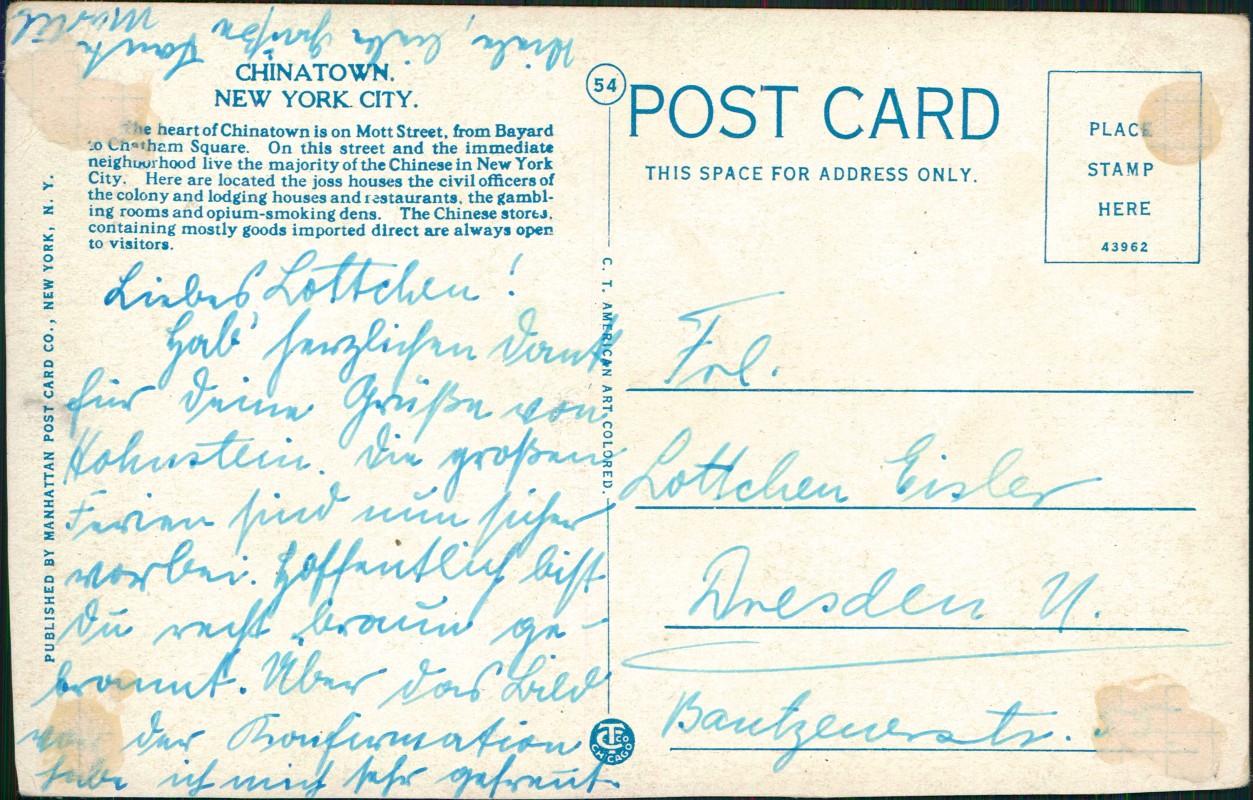 CHINATOWN.
NEW YORK CITY.
The heart of Chinatown is on Mott Street, from Bayard
to Chatham Square. On this street and the immediate
neighborhood live the majority of the Chinese in New York
City. Here are located the joss houses the civil officers of
the colony and lodging houses and restaurants, the gambl-
ing rooms and opium-smoking dens. The Chinese stores,
containing mostly goods imported direct are always open
to visitors.
Liebes Lottchen!
Hab' herzlichen Dank
für deine Grüße von
Hohnstein. Die großen
Ferien sind nun sicher
vorbei. Hoffentlich bist
du recht braun ge-
brannt. Über das Bild
von der Konfirmation
habe ich mich sehr gefreut.
Viele, liebe Grüße Tante
PUBLISHED BY MANHATTAN POST CARD CO., NEW YORK, N. Y.
C. T. AMERICAN ART COLORED.
54
POST CARD
THIS SPACE FOR ADDRESS ONLY.
PLACE
STAMP
HERE
43962
Frl.
Lottchen Eisler
Dresden N.
Bautzenerstr.
CT
CO
CHICAGO